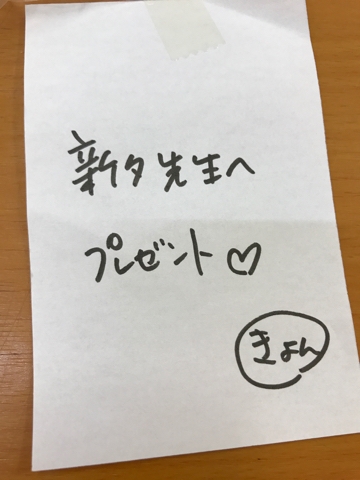 新夕先生へ
プレゼント♡
きょん